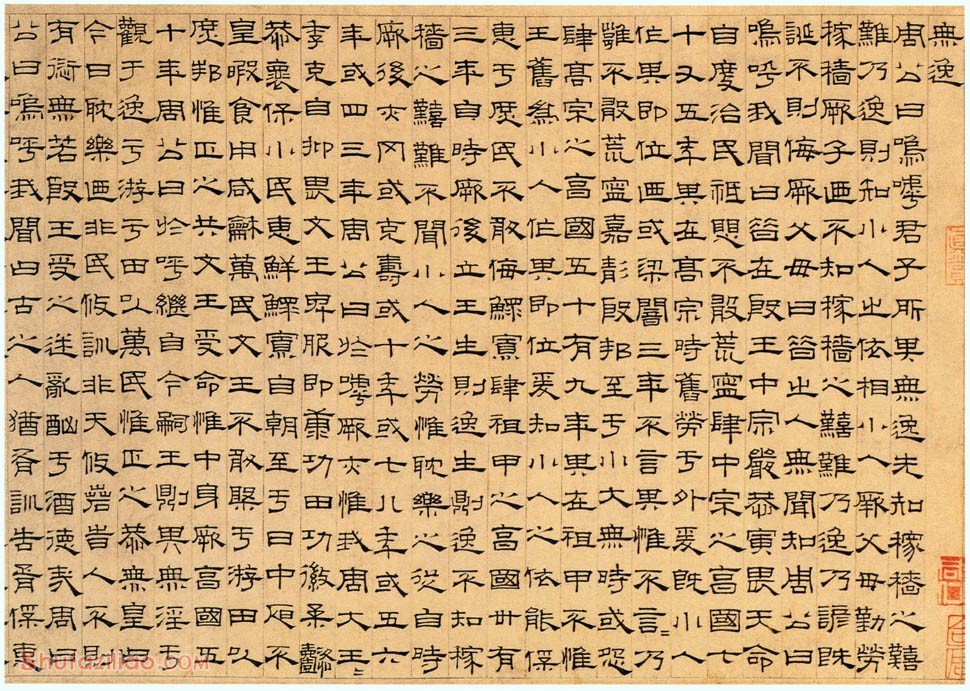 無逸
周公曰嗚嘑君子所其無逸先知稼穡之囏
難乃逸則知小人之依相小人厥父母勤勞
稼穡厥子迺不知稼穡之囏難乃逸乃諺既
誕不則侮厥父母曰昔之人無聞知周公曰
嗚呼我聞曰昔在殷王中宗嚴恭寅畏天命
自度治民祗懼不敢荒寧肆中宗之亯國七
十又五年其在高宗時舊勞于外爰既小人
作其即位迺或梁闇三年不言其惟不言=乃
雍不敢荒寧嘉靜殷邦至于小大無時或怨
肆高宗之亯國五十有九年其在祖甲不惟
王舊為小人作其即位爰知小人之依能保
惠于庶民不敢侮鰥寡肆祖甲之亯國卅有
三年自時厥後立王生則逸生則逸不知稼
穡之囏難不聞小人之勞惟耽樂之從自時
厥後亦罔或克壽或十年或七八年或五六
年或四三年周公曰於嘑厥亦惟我周大王=
季克自抑畏文王卑服即康功田功徽柔懿
恭襄保小民惠鮮鰥寡自朝至于日中昃不
皇暇食用咸龢萬民文王不敢盤于游田以
庶邦惟正之共文王受命惟中身厥亯國五
十年周公曰於呼繼自今嗣王則其無淫于
觀于逸于游于田以萬民惟正之恭無皇曰
今日耽樂迺非民攸訓非天攸若昔人丕則
有愆無若殷王受之迷亂酗于酒德哉周
公曰嗚呼我聞曰古之人猶胥訓告胥保惠
Shufaziliao.COM